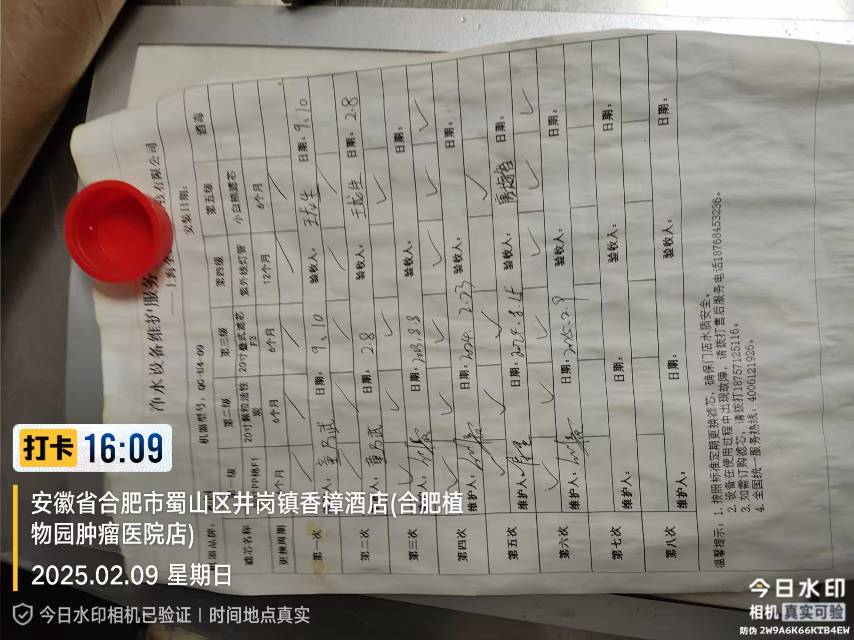 净水设备维护服务
技有限公司
机器型号：QG-U4-09
安装日期：
滤芯名称
PP棉F1
20寸颗粒活性炭
20寸叠式滤芯F3
紫外线灯管
小白熊滤芯
第二级
第三级
第四级
第五级
消毒
更换周期
6个月
6个月
12个月
6个月
第一次
日期：9.10
验收人：
日期：9.10
第二次
日期：2.8
验收人：
日期：2.8
第三次
日期：
验收人：
日期：
第四次
维护人：
日期：2024.2.23
验收人：
日期：
第五次
维护人：
日期：2024.8.15
验收人：
日期：
第六次
维护人：
日期：2025.2.9
验收人：
日期：
第七次
维护人：
日期：
验收人：
日期：
第八次
维护人：
日期：
验收人：
日期：
温馨提示：1、按照标准定期更换滤芯，确保门店水质安全。
2、设备在使用过程中出现故障，请拨打售后服务电话18768453236。
3、如需订购滤芯，请拨打18757125116。
4、全国统一服务热线：4006121926。
打卡 16:09
安徽省合肥市蜀山区井岗镇香樟酒店(合肥植
物园肿瘤医院店)
2025.02.09 星期日
今日水印相机已验证 | 时间地点真实
今日水印
相机 真实可验
防伪 2W9A6K66KTB4EW